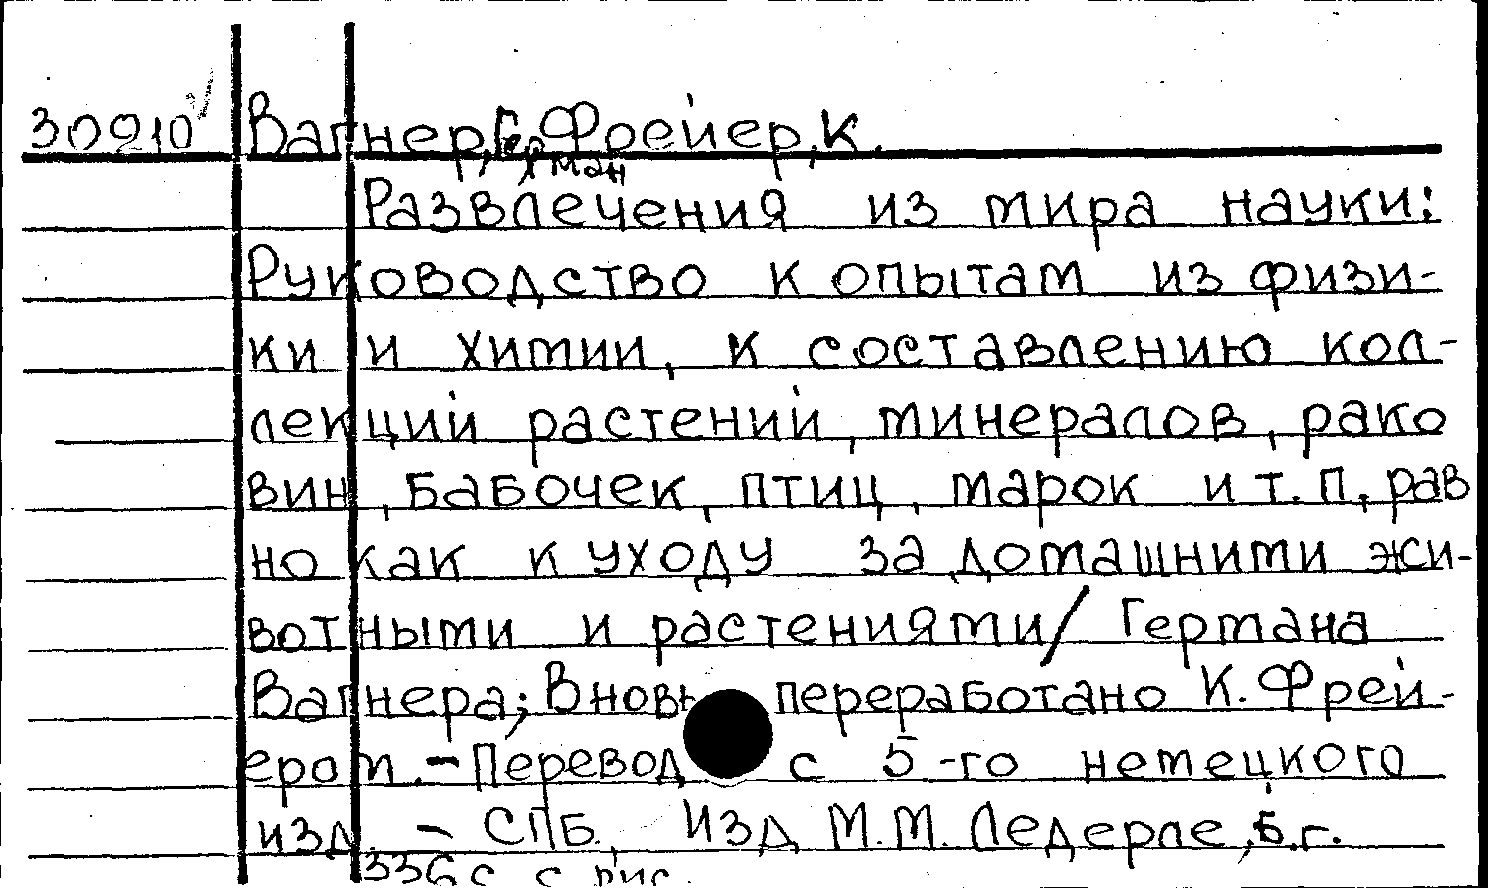 30910 Вагнер, Герман, Фрейер, К.
Развлечения из мира науки:
Руководство к опытам из физи-
ки и химии, к составлению кол-
лекций растений, минералов, рако
вин, бабочек, птиц, марок и т. п., рав
но как к уходу за домашними жи-
вотными и растениями/ Германа
Вагнера; Вновь переработано К. Фрей-
ером. - Перевод с 5-го немецкого
изд. - СПБ., Изд М.М. Ледерле, б.г.
336 с. с рис.